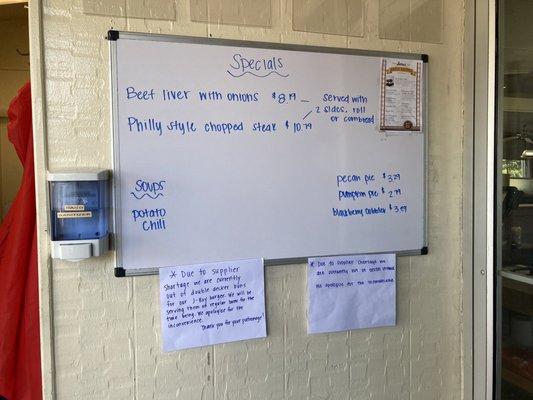 Specials
Beef liver with onions $8.79
served with
2 sides, roll
or cornbread
Philly style chopped steak $10.79
Soups
potato
Chili
pecan pie $3.29
pumpkin pie $2.79
blackberry cobbler $3.49
* Due to supplier
shortage we are currently
out of double decker buns
for our J-Boy burger. We will be
serving them on regular buns for the
time being. We apologize for the
inconvenience.
Thank you for your patronage!
* Due to supplier shortage we
are currently out of
We apologize for the inconvenience.